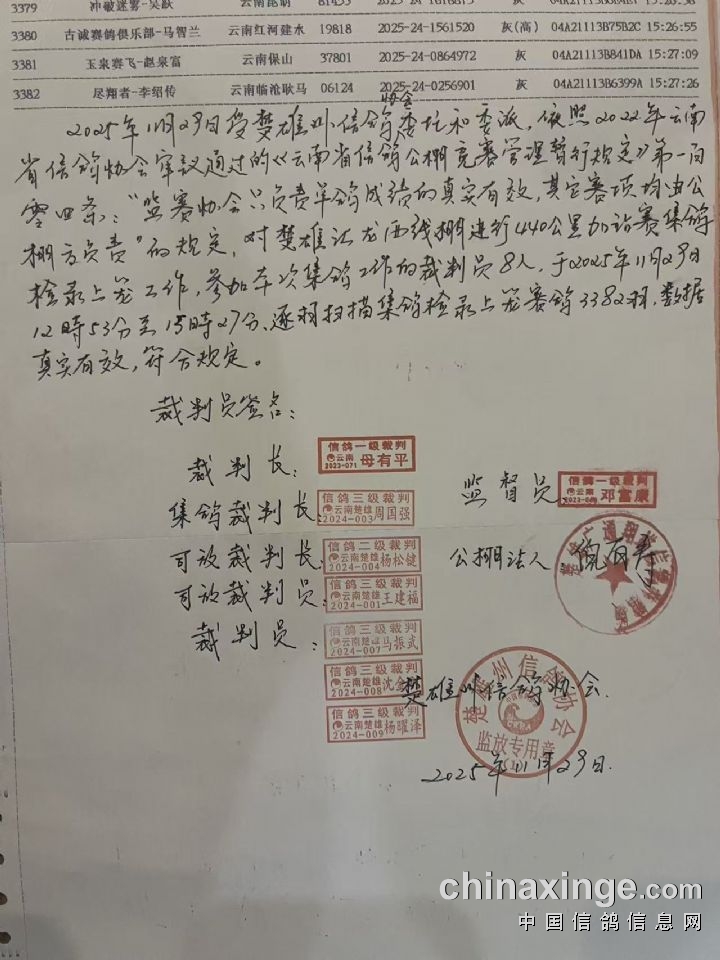 3379 冲破迷雾-吴跃 云南昆明 81453
3380 古诚赛鸽俱乐部-马智兰 云南红河建水 19818 2025-24-1561520 灰(高) 04A21113B75B2C 15:26:55
3381 玉泉赛飞-赵泉富 云南保山 37801 2025-24-0864972 灰 04A21113B841DA 15:27:09
3382 尽翔者-李绍传 云南临沧耿马 06124 2025-24-0256901 灰 04A21113B6399A 15:27:26
协会
2025年11月29日受楚雄州信鸽委托和委派，依照2022年云南
省信鸽协会审议通过的《云南省信鸽公棚竞赛管理暂行规定》第一百
零四条："监赛协会只负责羊鸽成绩的真实有效，其它赛项均由公
棚方负责"的规定，对楚雄江龙西线棚进行440公里加站赛集鸽
检录上笼工作，参加本次集鸽工作的裁判员8人，于2025年11月29日
12時53分至15時27分，逐羽扫描集鸽检录上笼赛鸽3382羽，数据
真实有效，符合规定。
裁判员签名：
裁判长： 信鸽一级裁判 云南 2023-071 母有平
监督员 信鸽一级裁判 云南 邓富康
集鸽裁判长 信鸽三级裁判 云南楚雄 2024-003 周国强
司放裁判长 信鸽二级裁判 云南楚雄 2024-004 杨松健
公棚法人
司放裁判员 信鸽三级裁判 云南楚雄 2024-001 王建福
裁判员： 信鸽三级裁判 云南楚雄 2024-007 马振武
信鸽三级裁判 云南楚雄 2024-008
楚雄州信鸽协会
信鸽三级裁判 云南楚雄 2024-009 杨曜泽
楚雄州信鸽协会
监放专用章
2025年11月29日.
chinaxinge.com
中国信鸽信息网